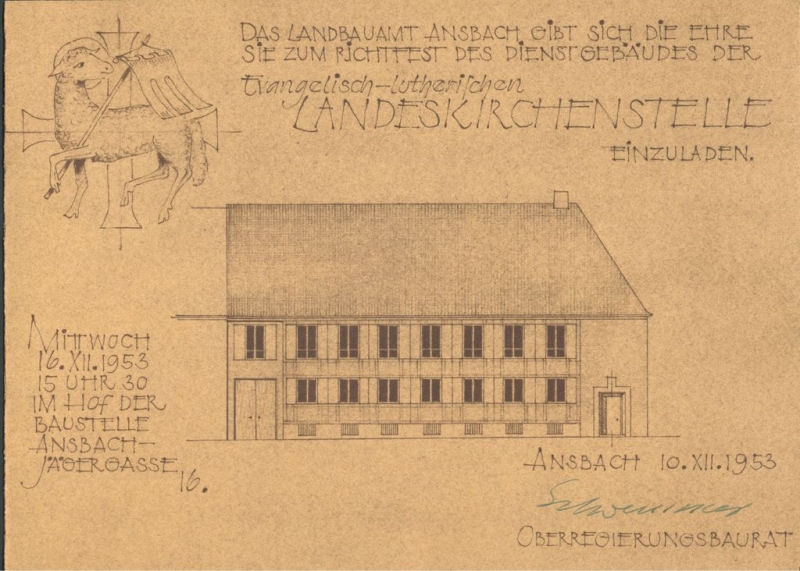 DAS LANDBAUAMT ANSBACH GIBT SICH DIE EHRE
SIE ZUM RICHTFEST DES DIENSTGEBÄUDES DER
Evangelisch-lutherischen
LANDESKIRCHENSTELLE
EINZULADEN.
MITTWOCH
16.XII.1953
15 UHR 30
IM HOF DER
BAUSTELLE
ANSBACH-
JÄGERGASSE
16.
ANSBACH 10.XII.1953
OBERREGIERUNGSBAURAT